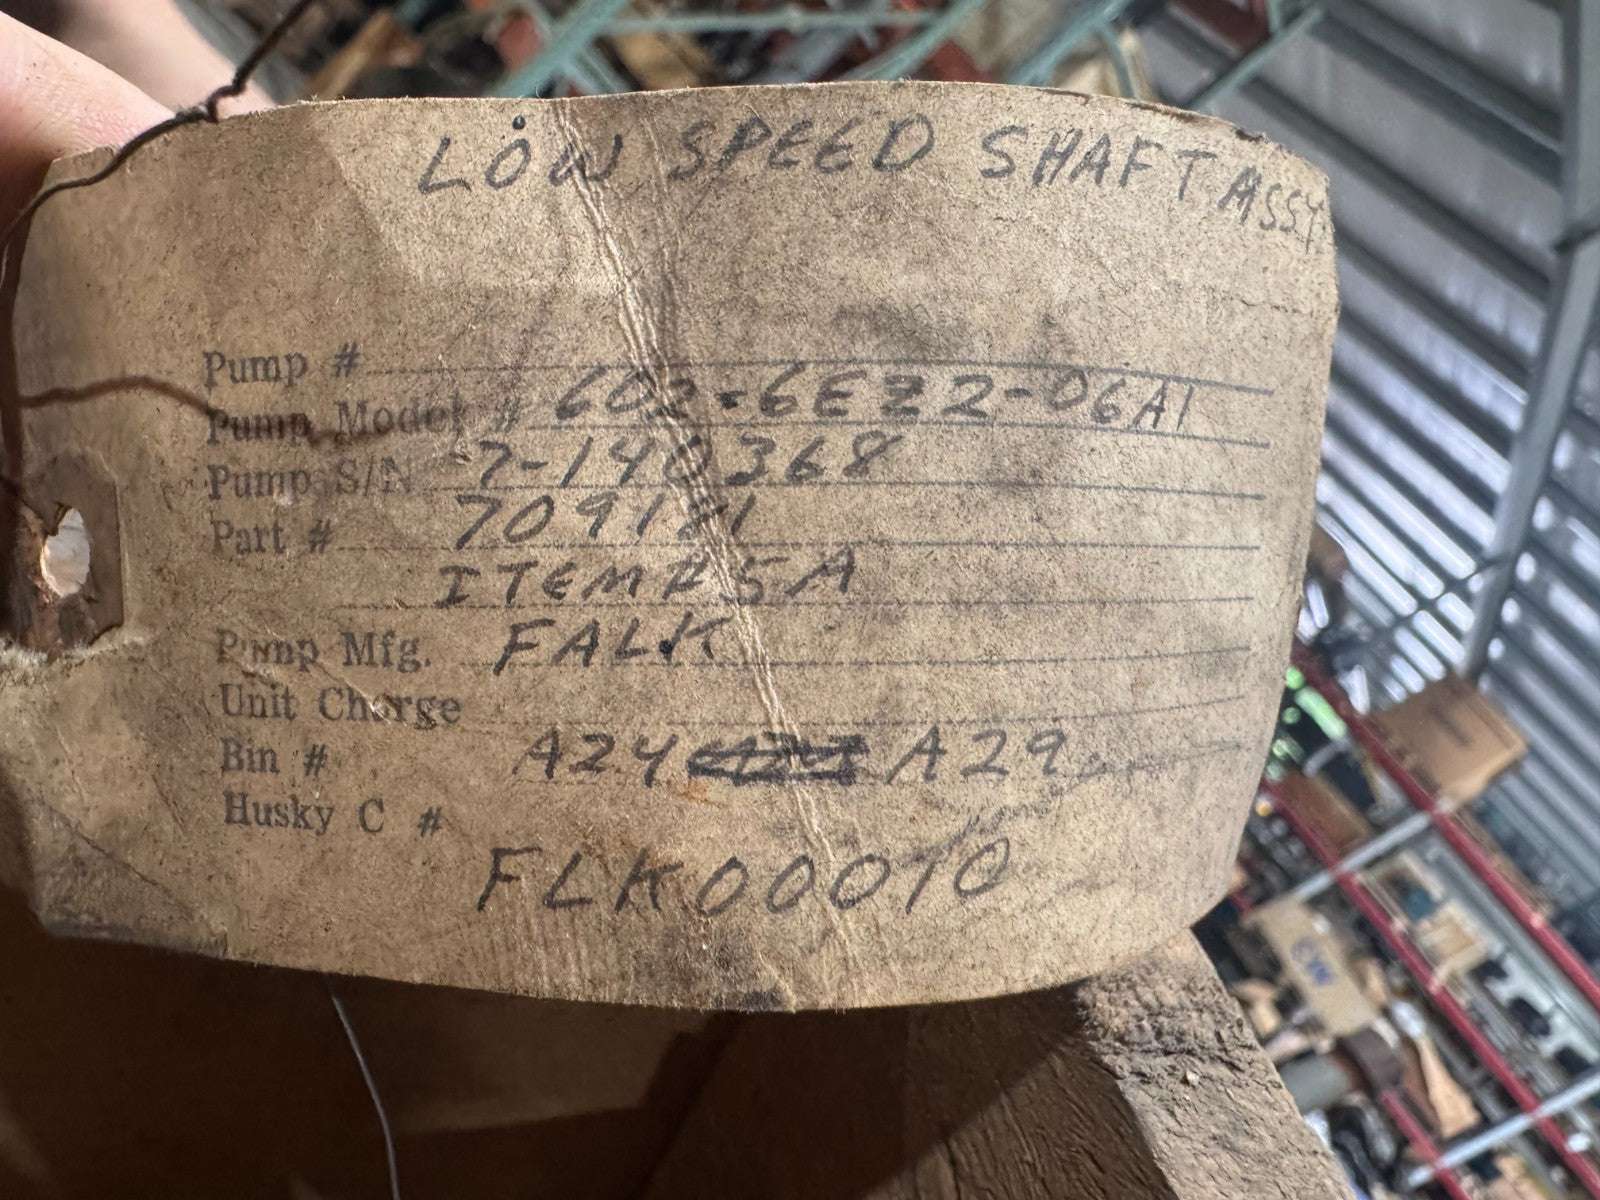 LOW SPEED SHAFT ASSY
Pump #
Pump Model # 602-6EZ2-06A1
Pump S/N 7-140368
Part # 709121
ITEM#5A
Pump Mfg. FALK
Unit Charge
Bin # A24 A29
Husky C #
FLK00070